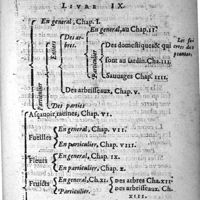 LIVRE IX.
En general, Chap. I.
En general, au Chap. II.
Des arbres.
Entiers
Particulier
Des domestiques & qui
sont au iardin. Cha. III.
Sauuages Chap. IIII.
Des arbrisseaux, Chap. V.
Particulier
Des parties
Asçauoir, racines, Chap. VI.
Fueilles
En general, Chap. VII.
En particulier, Chap. VIII.
Fleurs
En general, Chap. IX.
En particulier, Chap. X.
Fruicts
En general, Ch. XI.
Particulier.
des arbres Cha. XII.
des arbrisseaux, Ch.
XIII.
plantes.